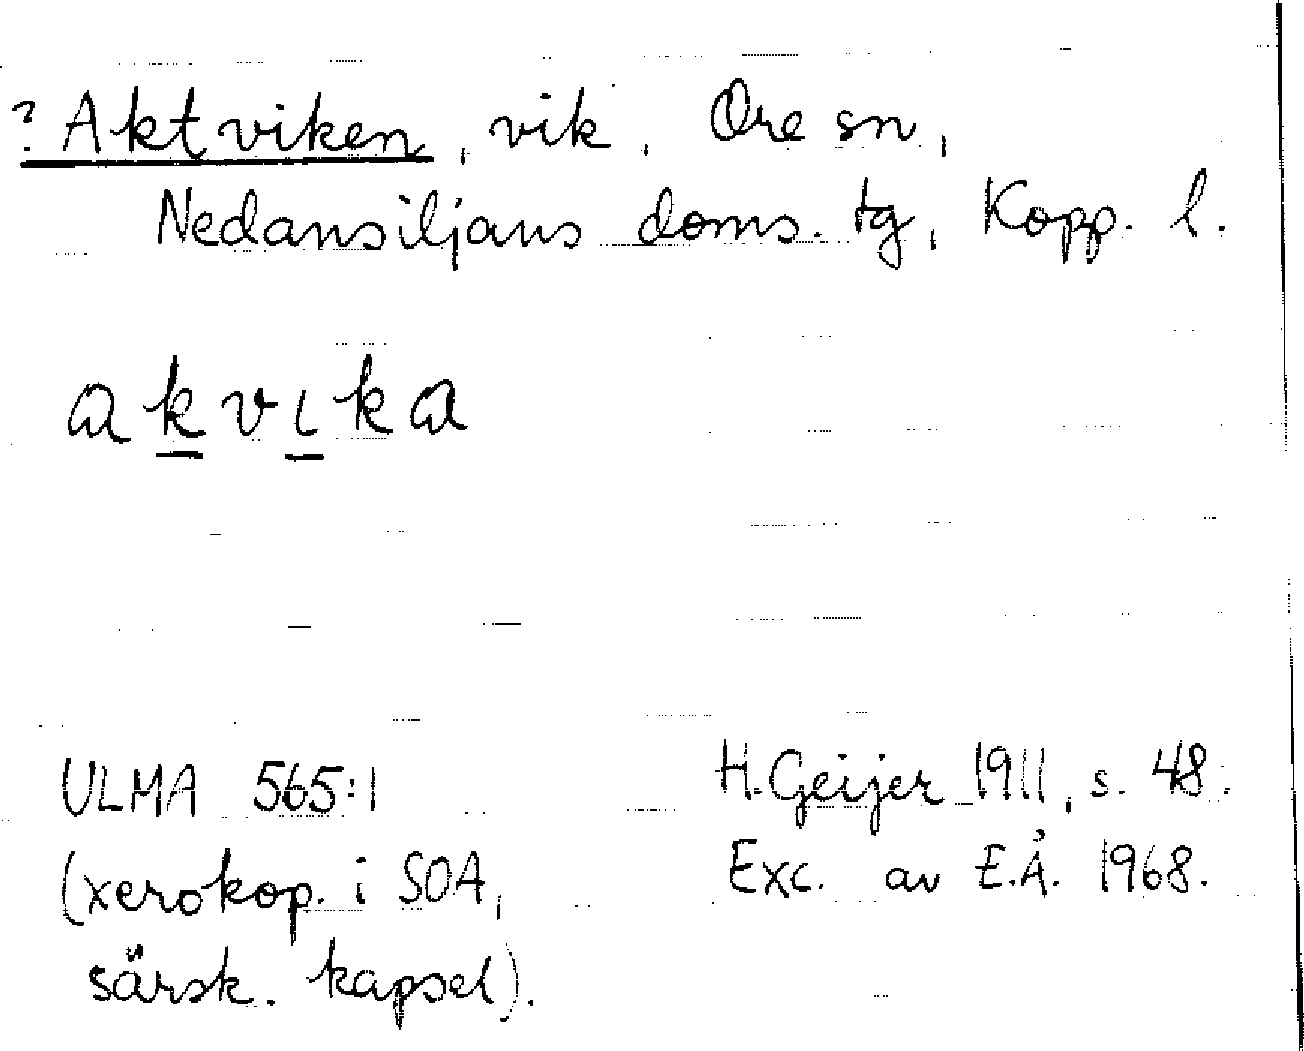 ? Aktviken, vik, Ore sn,
Nedansiljans doms. tg, Kopp. l.
akvıka
ULMA 565:1
(xerokop. i SOA,
särsk. kapsel).
H. Geijer 1911, s. 48.
Exc. av E.Å. 1968.